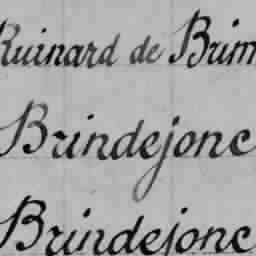 Ruinard de Brim
Brindejonc
Brindejonc